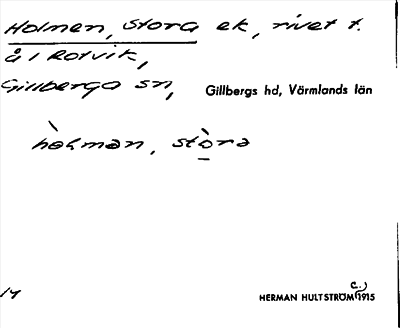 Holmen, Stora ek, rivet t.
å i Rotvik,
Gillberga sn,
Gillbergs hd, Värmlands län
hòlman, stòra
14
HERMAN HULTSTRÖM (c.) 1915